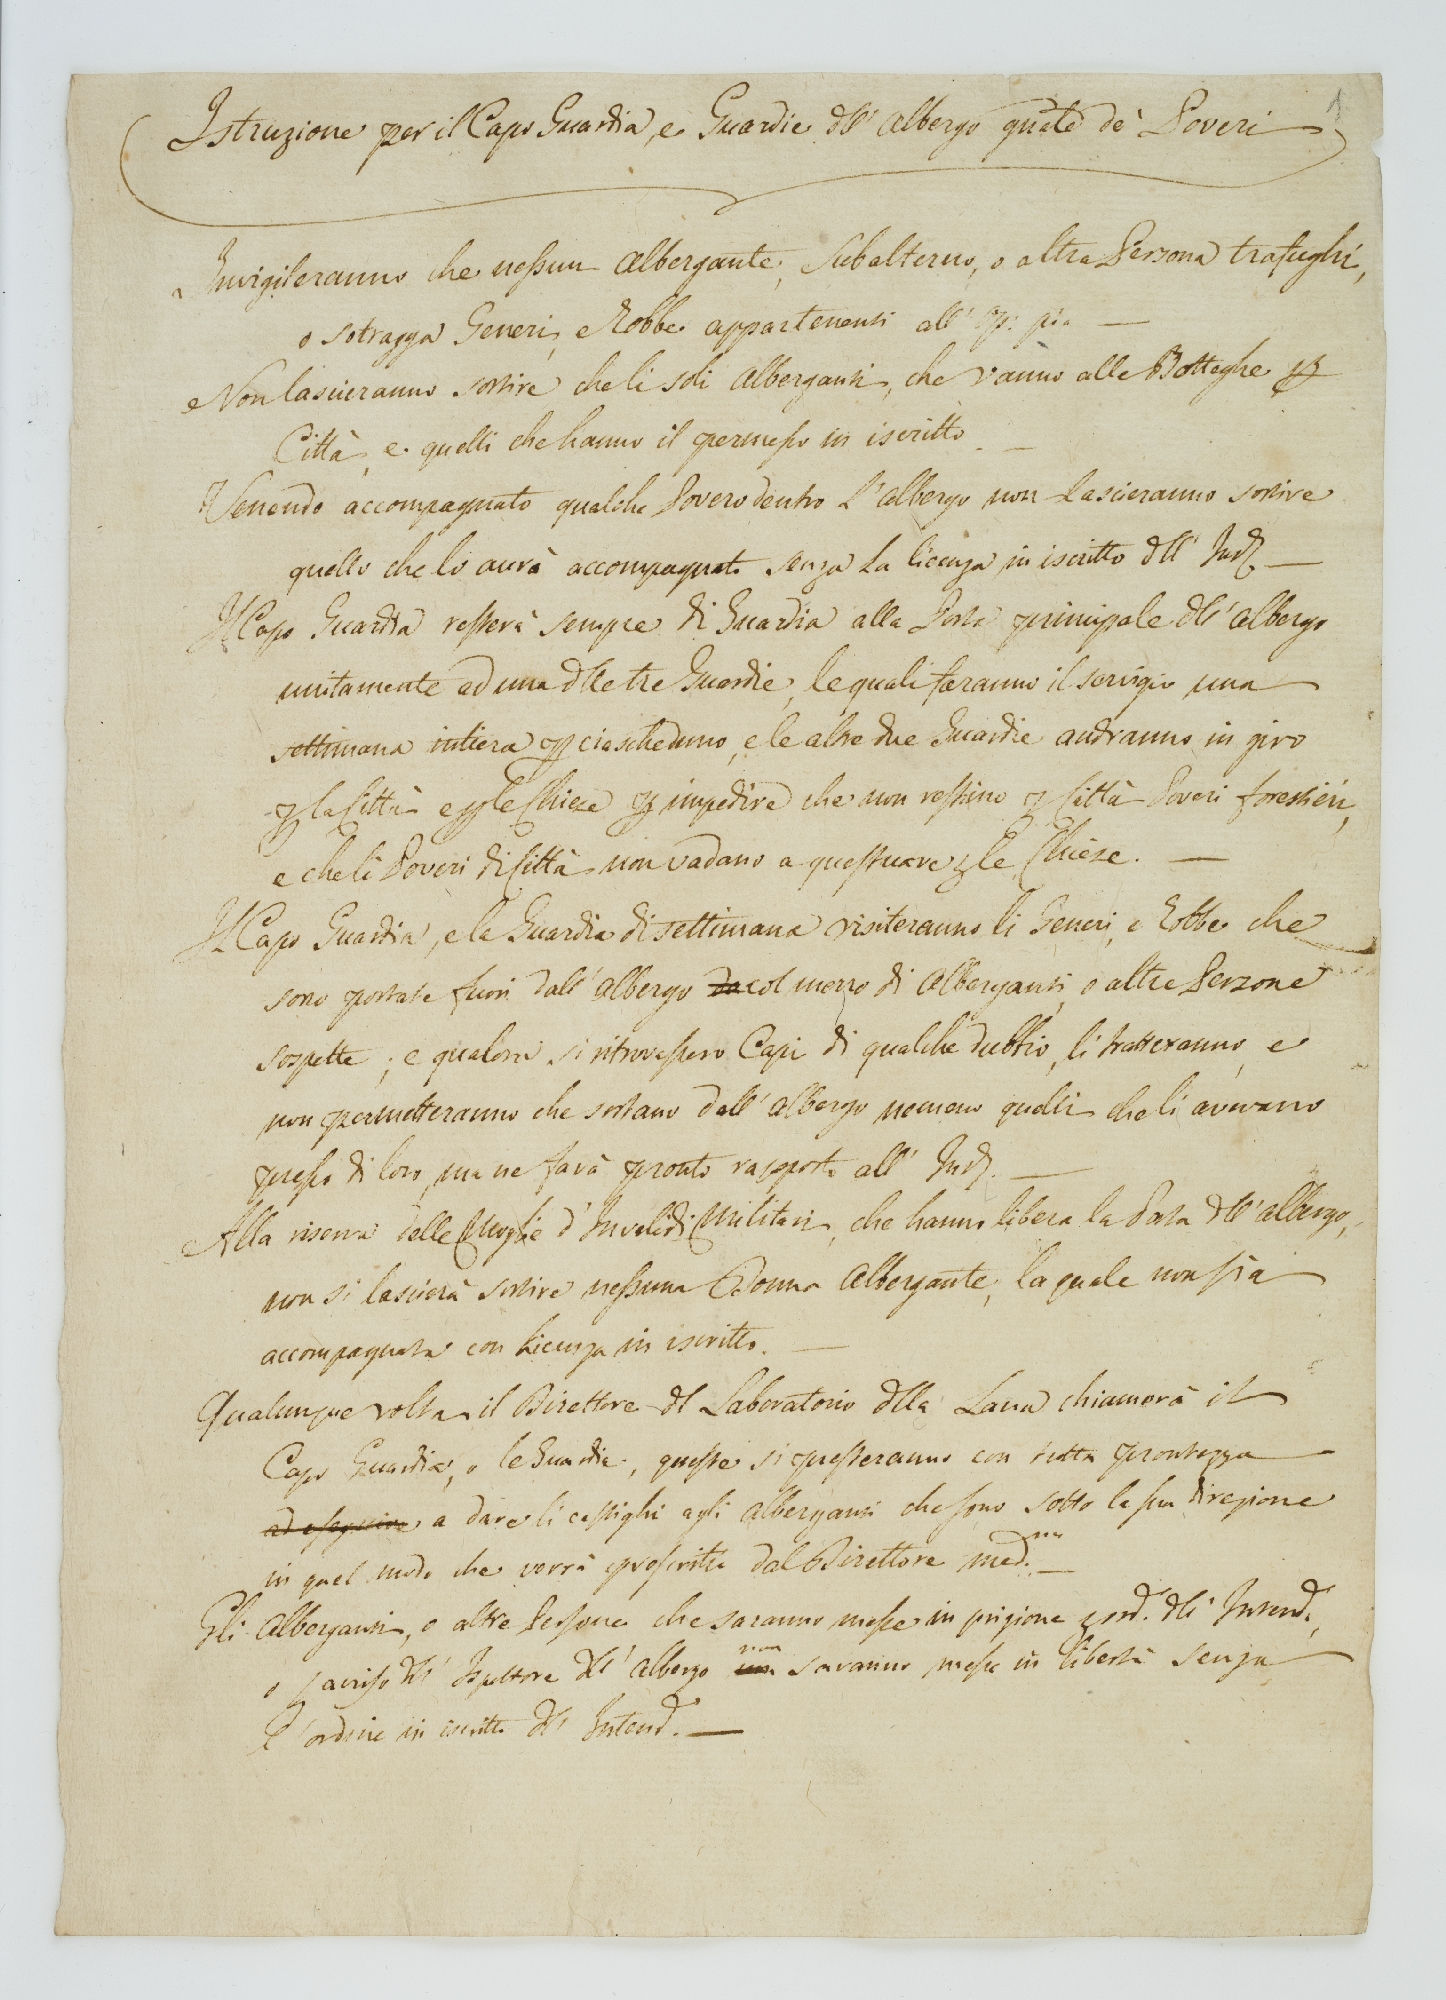 1
Istruzione per il Capo Guardia, e Guardie dll' Albergo gnãle de' Poveri
Invigileranno che nessun Albergante, Subalterno, o altra Persona trafughi,
o sotragga Generi, e Robbe appartenenti all' Op: pia
Non lascieranno sortire che li soli Alberganti, che vanno alle Botteghe p
Città, e quelli che hanno il permesso in iscritto
Venendo accompagnato qualche Povero dentro l'Albergo non lascieranno sortire
quello che lo avrà accompagnato senza la licenza in iscritto dll' Ind.
Il Capo Guardia resterà sempre di Guardia alla Porta principale dll' Albergo
unitamente ad una dlle tre Guardie, le quali faranno il servizio una
settimana intiera p ciascheduno, e le altre due Guardie andranno in giro
p la Città e p le Chiese p impedire che non restino p Città Poveri forestieri,
e che li Poveri di Città non vadano a questuare p le Chiese.
Il Capo Guardia, e la Guardia di settimana visiteranno li Generi, e Robbe che
sono portate fuori dall' Albergo da col mezzo di Alberganti, o altre Persone
sospette; e qualora si ritrovassero Capi di qualche dubbio, li tratteranno, e
non permetteranno che sortano dall' Albergo nemeno quelli che li avevano
presso di loro, ma ne farà pronto rapporto all' Ind.
Alla riserva delle Moglie d'Invalidi Militari, che hanno libera la Porta dll' Albergo,
non si lascierà sortire nessuna Donna Albergante, la quale non sia
accompagnata con Licenza in iscritto.
Qualunque volta il Direttore dl Laboratorio dlla Lana chiamerà il
Capo Guardia, o le Guardie, queste si presteranno con tutta prontezza
ad eseguire a dare li castighi agli Alberganti che sono sotto la sua direzione
in quel modo che verrà prescritto dal Direttore med.mo
Gli Alberganti, o altre Persone che saranno messe in prigione p ord. dll' Intend.,
o p avviso dll' Ispettore dll' Albergo non saranno messe in libertà senza
l'ordine in iscritto dll' Intend.